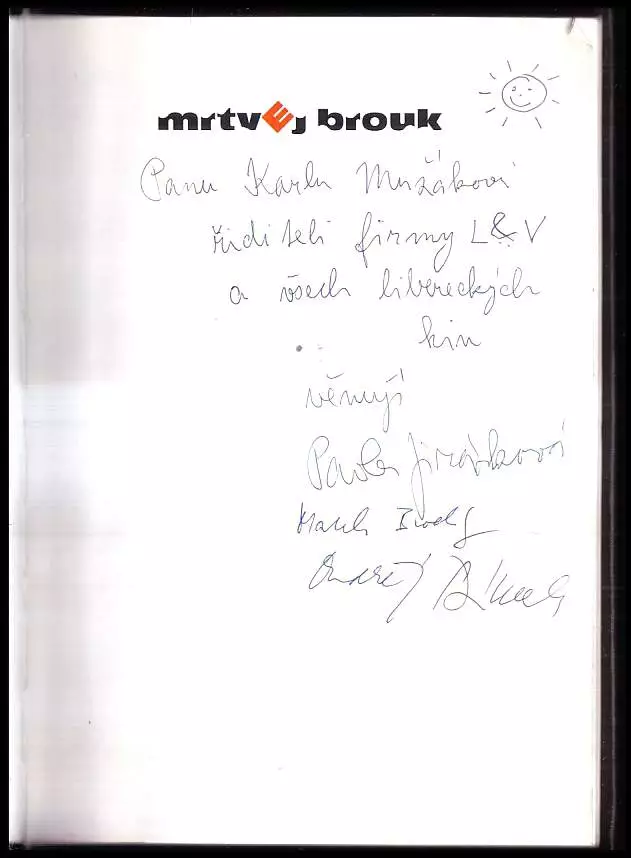 mrtvEj brouk
Panu Karlu Mužákovi
řediteli firmy L&V
a všech libereckých
kin
věnují
Pavla Jiráňková
Marek
Ondřej